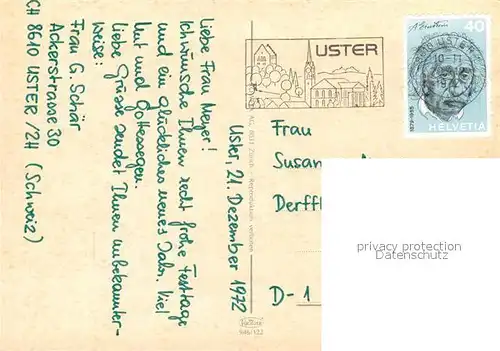 Uster, 21. Dezember 1972
Liebe Frau Meyer!
Ich wünsche Ihnen recht frohe Festtage
und ein glückliches neues Jahr. Viel
Mut und Gottessegen.
Liebe Grüsse sendet Ihnen unbekannter-
weise:
Frau G. Schär
Ackerstrasse 30
CH 8610 USTER/ZH (Schweiz)
USTER
8610 USTER
10-11
A. Einstein
40
HELVETIA
1879-1955
Frau
Susan
Derffl
D-1
privacy protection
veikkos-archiv.com